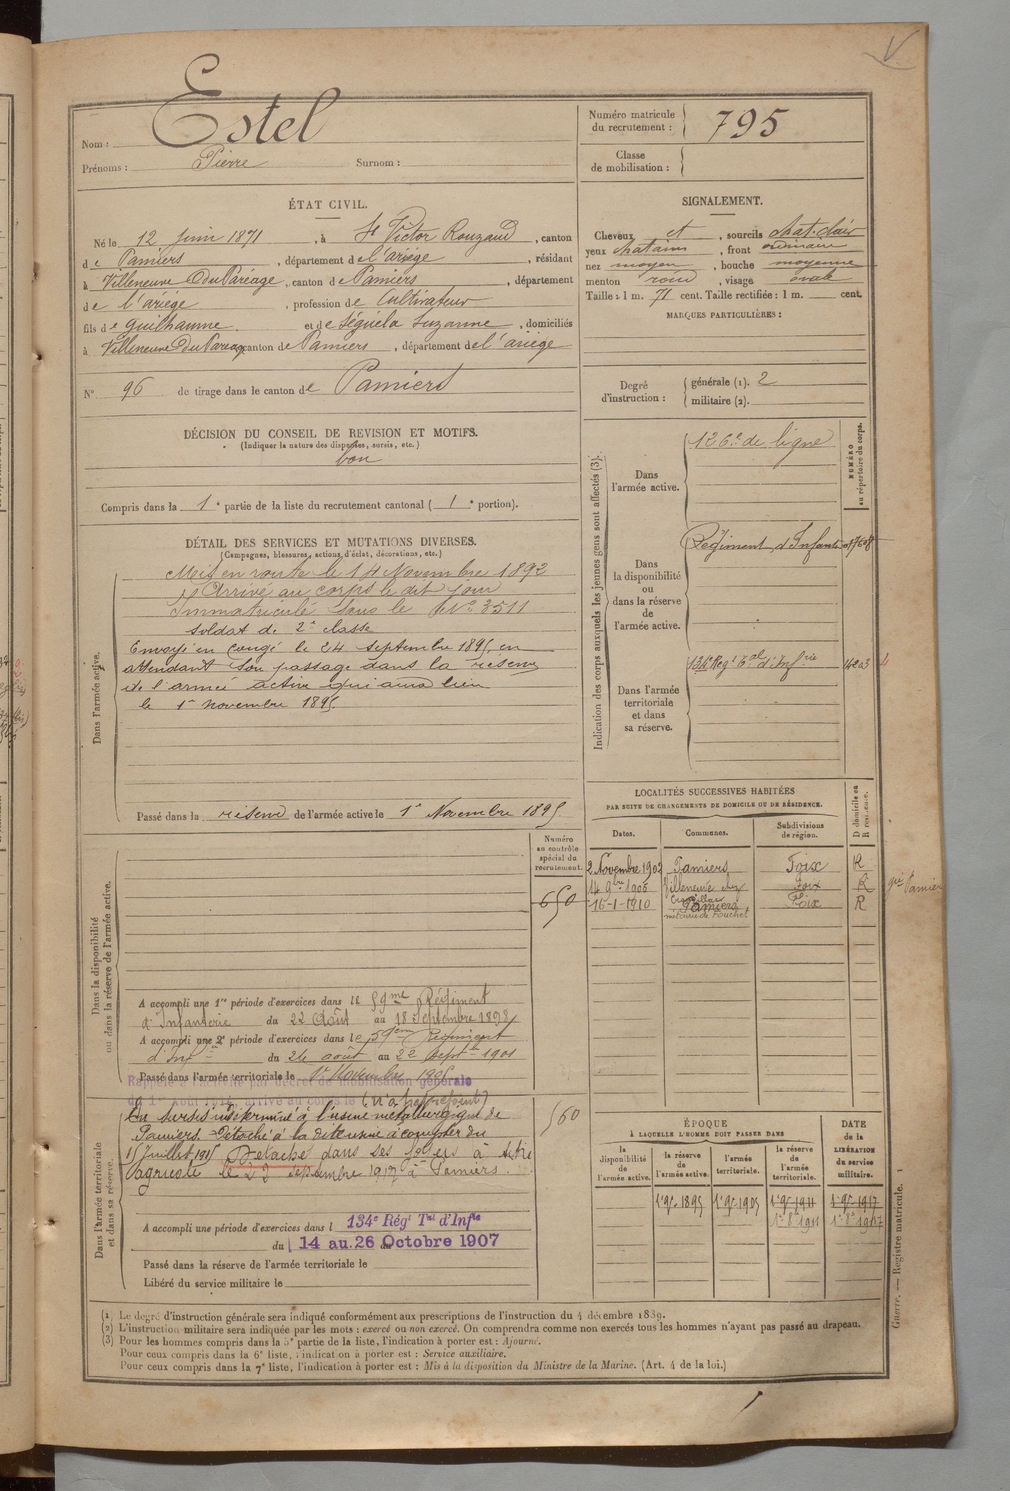 Estel
Nom :
Prénoms : Pierre Surnom :
Numéro matricule
du recrutement : 795
Classe
de mobilisation :
ÉTAT CIVIL.
Né le 12 Juin 1871, à St Victor Rouzaud, canton
de Pamiers, département de l'ariège, résidant
à Villeneuve Du Paréage, canton de Pamiers, département
de l'ariège, profession de Cultivateur
fils de Guilhaume et de Séguéla Suzanne, domiciliés
à Villeneuve Du Pareage canton de Pamiers, département de l'ariège
N° 96 de tirage dans le canton de Pamiers
DÉCISION DU CONSEIL DE REVISION ET MOTIFS.
(Indiquer la nature des dispenses, sursis, etc.)
bon
Compris dans la 1e partie de la liste du recrutement cantonal (1e portion).
DÉTAIL DES SERVICES ET MUTATIONS DIVERSES.
(Campagnes, blessures, actions d'éclat, décorations, etc.)
Dans l'armée active.
Mis en route le 14 Novembre 1892
Arrivé au corps le dit jour
Immatriculé sous le N° 3511
soldat de 2e classe
Envoyé en congé le 24 septembre 1895 en
attendant son passage dans la réserve
de l'armée active qui aura lieu
le 1er novembre 1895
Passé dans la réserve de l'armée active le 1er Novembre 1895
Numéro
au contrôle
spécial du
recrutement.
650
Dans la disponibilité
ou dans la réserve de l'armée active.
A accompli une 1re période d'exercices dans le 59me Régiment
d'Infanterie du 22 Août au 18 Septembre 1898
A accompli une 2e période d'exercices dans le 59em Régiment
d'Infie du 26 août au 22 Septe 1901
Passé dans l'armée territoriale le 1er Novembre 1905
Rappelé à l'activité par décret de mobilisation générale
du 1er Août 1914, arrivé au corps le (n'a pas rejoint)
Dans l'armée territoriale
et dans sa réserve.
En sursis indéterminé à l'usine métallurgique de
Pamiers. Détaché à la dite usine à compter du
15 Juillet 1915 Détaché dans ses foyers à titre
agricole le 23 septembre 1917 à Pamiers
560
A accompli une période d'exercices dans l 134e Régt Tal d'Infie
du 14 au 26 Octobre 1907
Passé dans la réserve de l'armée territoriale le
Libéré du service militaire le
SIGNALEMENT.
Cheveux et, sourcils chat. clair
yeux chatains, front ordinaire
nez moyen, bouche moyenne
menton rond, visage ovale
Taille : 1 m. 71 cent. Taille rectifiée : 1 m. cent.
MARQUES PARTICULIÈRES :
Degré
d'instruction :
générale (1). 2
militaire (2).
Indication des corps auxquels les jeunes gens sont affectés (3).
NUMÉRO
au répertoire du corps.
Dans
l'armée active.
126e de ligne
Dans
la disponibilité
ou
dans la réserve
de
l'armée active.
Régiment d'Infanterie
Dans l'armée
territoriale
et dans
sa réserve.
134e Régt Tal d'Infie
LOCALITÉS SUCCESSIVES HABITÉES
PAR SUITE DE CHANGEMENTS DE DOMICILE OU DE RÉSIDENCE.
Dates. Communes. Subdivisions
de région.
D domicile ou
R résidence.
2 Novembre 1902 Pamiers Foix R
14 9bre 1905 Villeneuve Foix R
16-1-1910 Pamiers Foix R
ÉPOQUE
À LAQUELLE L'HOMME DOIT PASSER DANS
la
disponibilité
de
l'armée active.
la réserve
de
l'armée active.
l'armée
territoriale.
la réserve
de
l'armée
territoriale.
DATE
de la
LIBÉRATION
du service
militaire.
1er 9e 1895 1er 9e 1905 1er 9e 1911 1er 9e 1917
1er 8e 1911 1er 8e 1917
(1) Le degré d'instruction générale sera indiqué conformément aux prescriptions de l'instruction du 4 décembre 1889.
(2) L'instruction militaire sera indiquée par les mots : exercé ou non exercé. On comprendra comme non exercés tous les hommes n'ayant pas passé au drapeau.
(3) Pour les hommes compris dans la 5e partie de la liste, l'indication à porter est : Ajourné.
Pour ceux compris dans la 6e liste, l'indication à porter est : Service auxiliaire.
Pour ceux compris dans la 7e liste, l'indication à porter est : Mis à la disposition du Ministre de la Marine. (Art. 4 de la loi.)
Guerre. — Registre matricule. 1